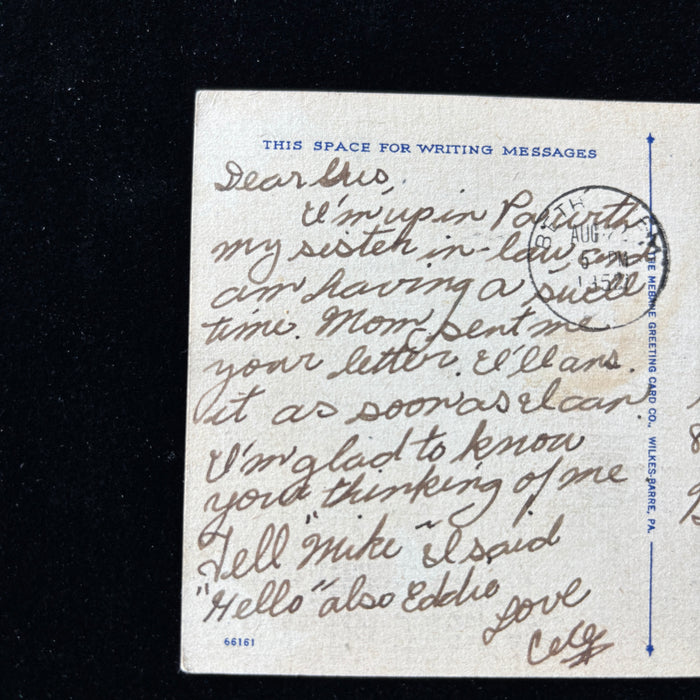 THIS SPACE FOR WRITING MESSAGES
Dear Gus,
I'm up in Pa with
my sister in-law, and
am having a swell
time. Mom sent me
your letter. I'll ans.
it as soon as I can.
I'm glad to know
your thinking of me
Tell "Mike" I said
"Hello" also Eddie
Love
66161
AUG
5 PM
THE MEBANE GREETING CARD CO., WILKES-BARRE, PA.